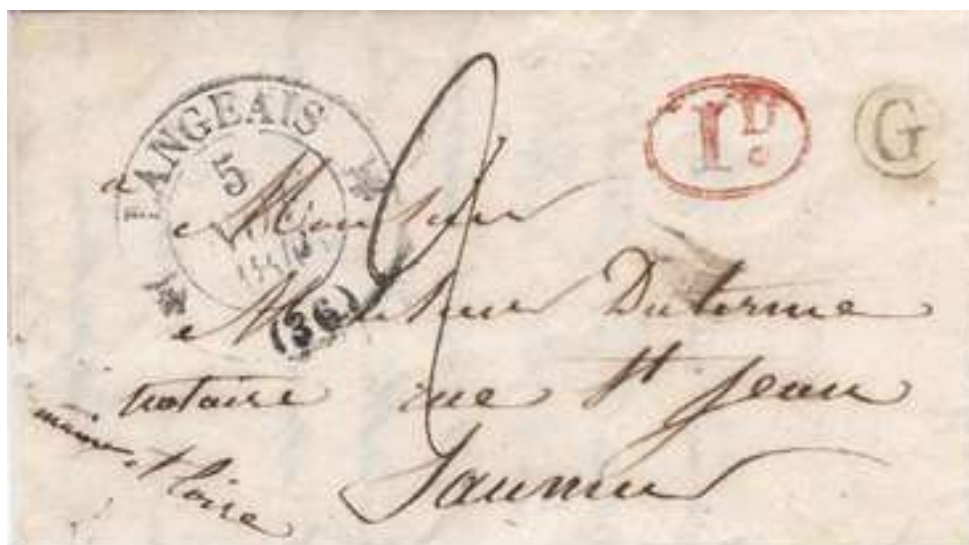 LANGEAIS
5
(36)
2
1D.
G
a
Monsieur
Monsieur Duterme
notaire rue St Jean
Saumur
maine et loire